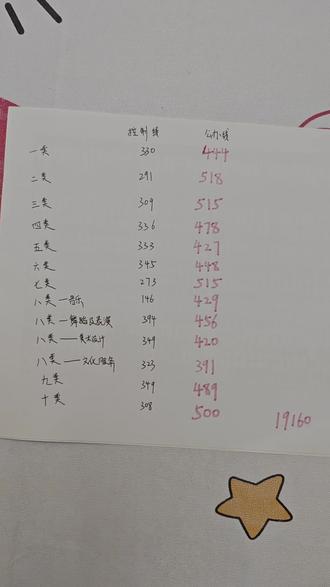 控制线 公办线
一类 330 444
二类 291 518
三类 309 515
四类 336 478
五类 333 427
六类 345 448
七类 273 515
八类一音乐 146 429
八类一舞蹈及表演 394 456
八类——美术设计 349 420
八类——文化服务 323 391
九类 349 489
十类 308 500
19160